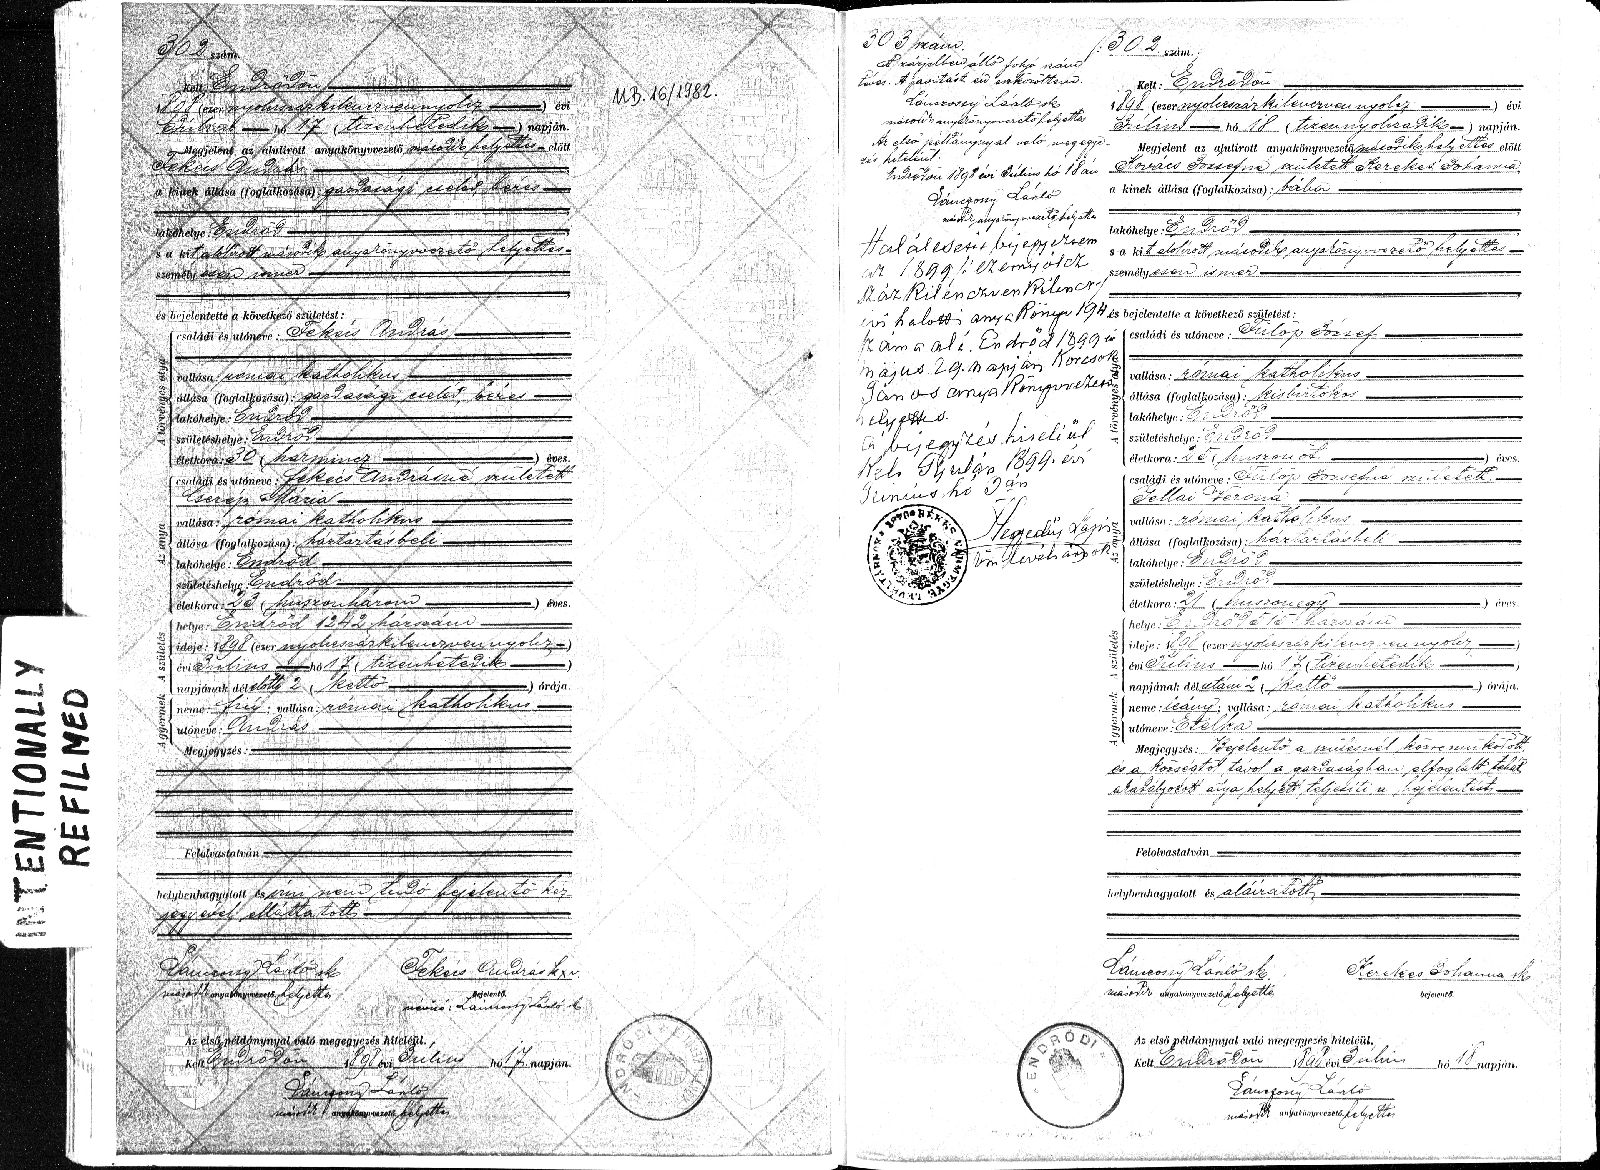 INTENTIONALLY
REFILMED
302 szám.
Kelt Endrődön
1898 (ezer nyolcszázkilencvennyolcz) évi
Július hó 17 (tizenhetedik) napján.
Megjelent az alulirott anyakönyvvezető második helyettes előtt
Fekécs András
a kinek állása (foglalkozása): gazdasági cseléd, béres
lakóhelye: Endrőd
s a kit alolirott második anyakönyvvezető helyettes
személyesen ismer
és bejelentette a következő születést:
A törvényes atya
családi és utóneve: Fekécs András
vallása: római katholikus
állása (foglalkozása): gazdasági cseléd, béres
lakóhelye: Endrőd
születéshelye: Endrőd
életkora: 30 (harmincz) éves.
Az anya
családi és utóneve: Fekécs Andrásné született
Cserép Mária
vallása: római katholikus
állása (foglalkozása): háztartásbeli
lakóhelye: Endrőd
születéshelye: Endrőd
életkora: 23 (huszonhárom) éves.
A születés
helye: Endrőd 1242 házszám
ideje: 1898 (ezer nyolcszázkilencvennyolcz)
évi Július hó 17 (tizenhetedik)
napjának délelőtti 2 (kettő) órája.
A gyermek
neme: fiú; vallása: római katholikus
utóneve: András
Megjegyzés:
Felolvastatván
helybenhagyatott és irni nem tudó bejelentő kéz
jegyével elláttatott
Lánczony László sk
második anyakönyvvezető helyettes
Fekécs András
bejelentő.
Lánczony László sk
Az első példánynyal való megegyezés hiteléül.
Kelt Endrődön 1898 évi Július hó 17 napján.
Lánczony László
második anyakönyvvezető helyettes
ENDRŐDI
MB. 16/1982.
303 szám.
A zárjelben álló folyó szám
téves. A javitást én eszközöltem.
Lánczony László sk
második anyakönyvvezető helyettes
Az első példánynyal való megegye-
zés hiteléül.
Endrődön 1898 évi Július hó 18 án
Lánczony László
második anyakönyvvezető helyettes
Halálesetét bejegyeztem
az 1899 /: ezernyolcz
száz kilenczvenkilencz
évi halotti anyakönyv 194
száma alá. Endrőd 1899 évi
május 29. napján
János anyakönyvvezető
helyettes.
A bejegyzés hiteléül
Kelt Gyulán 1899. évi
Június hó
Hegedűs Lajos
BÉKÉS VÁRMEGYE LEVÉLTÁRNOKA
(: 302 szám.
Kelt: Endrődön
1898 (ezer nyolcszázkilencvennyolcz) évi
Július hó 18 (tizennyolcadik) napján.
Megjelent az alulirott anyakönyvvezető második helyettes előtt
Kovács Józsefné született Kerekes Johánna
a kinek állása (foglalkozása): bába
lakóhelye: Endrőd
s a kit alolirott második anyakönyvvezető helyettes
személyesen ismer
és bejelentette a következő születést:
A törvényes atya
családi és utóneve: Fülöp József
vallása: római katholikus
állása (foglalkozása): kisbirtokos
lakóhelye: Endrőd
születéshelye: Endrőd
életkora: 25 (huszonöt) éves.
Az anya
családi és utóneve: Fülöp Józsefné született
Jellai Verona
vallása: római katholikus
állása (foglalkozása): háztartásbeli
lakóhelye: Endrőd
születéshelye: Endrőd
életkora: 21 (huszonegy) éves.
A születés
helye: Endrőd házszám
ideje: 1898 (ezer nyolcszázkilencvennyolcz)
évi Július hó 17 (tizenhetedik)
napjának délutáni 2 (kettő) órája.
A gyermek
neme: leány; vallása: római katholikus
utóneve: Etelka
Megjegyzés: Bejelentő a szülésnél közreműködött
és a községtől távol a gazdaságban elfoglalt tehát
akadályozott atya helyett teljesíti a bejelentést
Felolvastatván
helybenhagyatott és aláiratott
Lánczony László sk.
második anyakönyvvezető helyettes
Kerekes Johanna sk
bejelentő.
Az első példánynyal való megegyezés hiteléül.
Kelt Endrődön 1898 évi Július hó 18 napján.
Lánczony László
második anyakönyvvezető helyettes
ENDRŐDI